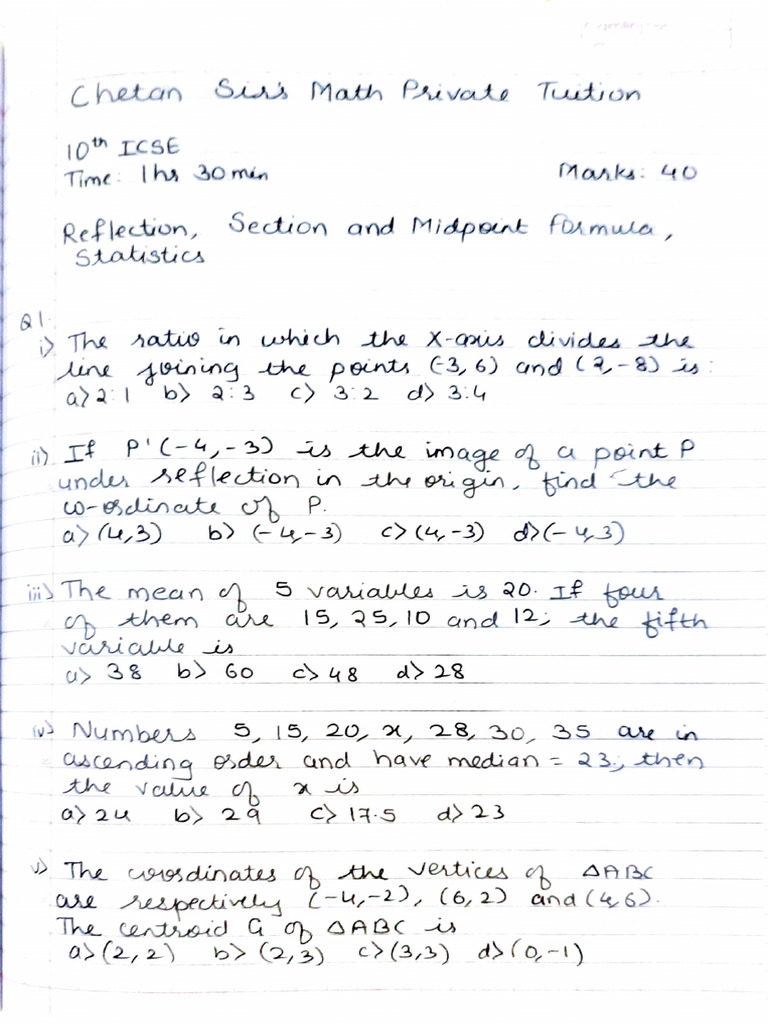 Chetan Sir's Math Private Tuition
10th ICSE
Time: 1hr 30min Marks: 40
Reflection, Section and Midpoint Formula,
Statistics
Q1.
i) The ratio in which the X-axis divides the
line joining the points (-3, 6) and (2, -8) is:
a) 2:1 b) 2:3 c) 3:2 d) 3:4
ii) If P'(-4, -3) is the image of a point P
under reflection in the origin, find the
co-ordinate of P.
a) (4,3) b) (-4,-3) c) (4,-3) d) (-4,3)
iii) The mean of 5 variables is 20. If four
of them are 15, 25, 10 and 12; the fifth
variable is
a) 38 b) 60 c) 48 d) 28
iv) Numbers 5, 15, 20, x, 28, 30, 35 are in
ascending order and have median = 23; then
the value of x is
a) 24 b) 29 c) 17.5 d) 23
v) The coordinates of the vertices of △ABC
are respectively (-4,-2), (6,2) and (4,6).
The centroid G of △ABC is
a) (2,2) b) (2,3) c) (3,3) d) (0,-1)